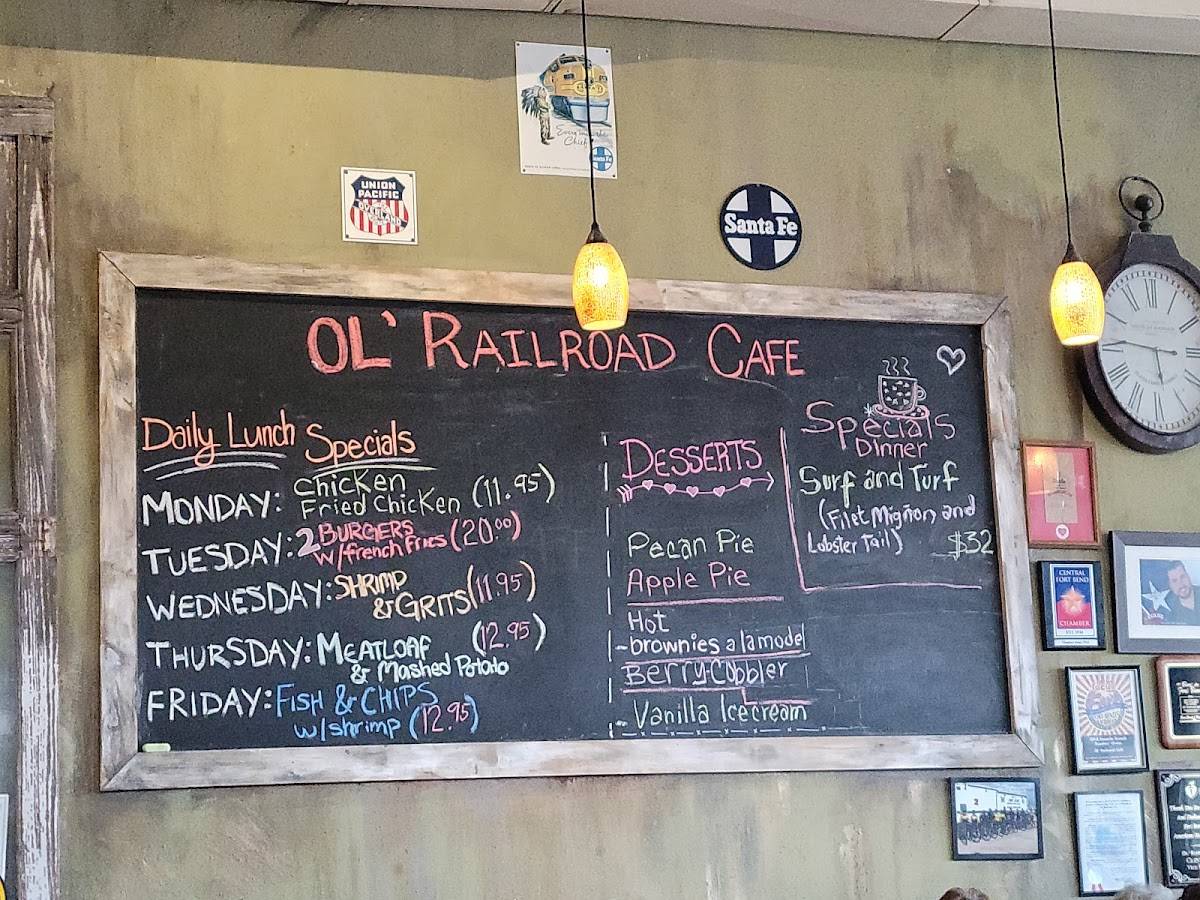 Every
Chief
Santa Fe
UNION
PACIFIC
OVERLAND
Santa Fe
OL' RAILROAD CAFE
Daily Lunch Specials
MONDAY: Chicken
Fried Chicken (11.95)
TUESDAY: 2 BURGERS
w/french Fries (20.00)
WEDNESDAY: SHRIMP
& GRITS (11.95)
THURSDAY: MEATLOAF (12.95)
& Mashed Potato
FRIDAY: FISH & CHIPS
w/shrimp (12.95)
DESSERTS
Pecan Pie
Apple Pie
Hot
- brownies a la mode
Berry-Cobbler
- Vanilla Icecream
Specials
Dinner
Surf and Turf
(Filet Mignon and
Lobster Tail) $32
CENTRAL
FORT BEND
CHAMBER
2